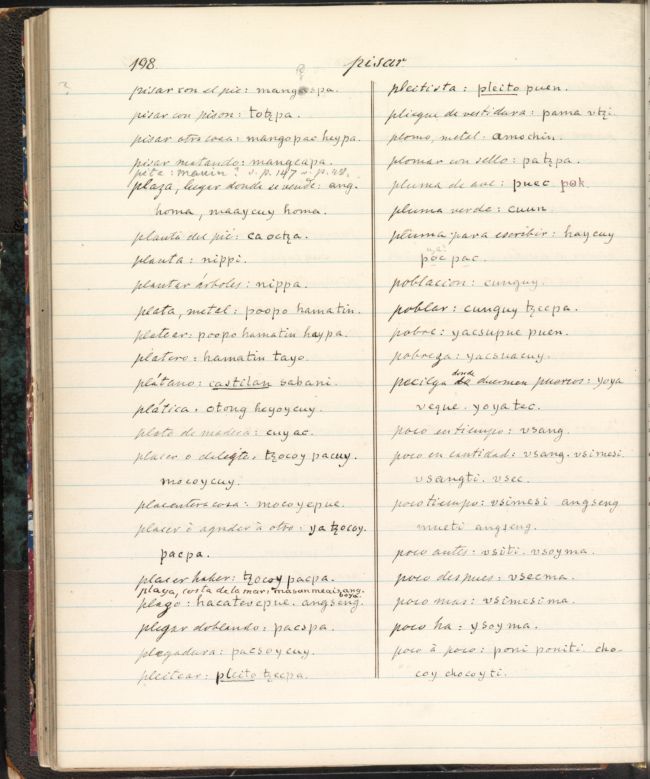 198.
pisar
pisar con el pie: mangaspa.
pisar con pison: totzpa.
pisar otra cosa: mangopac heypa.
pisar matando: mangcapa.
pita: mauin? v. p. 147 v. p. 48.
plaza, lugar donde se vende: ang.
homa, maaycuy homa.
planta del pie: ca octza.
planta: nippi.
plantar árboles: nippa.
plata, metal: poopo hamatin.
platear: poopo hamatin haypa.
platero: hamatin tayo.
plátano: castilan sabani.
plática: otong heyoycuy.
plato de madera: cuyac.
placer o deleyte: tzocoy pacuy.
mocoycuy.
placentera cosa: mocoyepue.
placer ò agradar à otro: ya tzocoy.
pacpa.
placer haber: tzocoy pacpa.
playa, costa de la mar: masanmeais, ang.
plazo: hacatevepue. angseng.
plegar doblando: pacspa.
plegadura: pacsoycuy.
pleitear: pleito tzecpa.
pleitista: pleito puen.
pliegue de vestidura: pama vtzi.
plomo, metal: amochin.
plomar con sello: patzpa.
pluma de ave: puec pok.
pluma verde: cuun.
pluma para escribir: haycuy
poc pac.
poblacion: cunguy.
poblar: cunguy tzecpa.
pobre: yacsupue puen.
pobreza: yacsuacuy.
pocilga donde duermen puercos: yoya
veque. yoyatec.
poco en tiempo: vsang.
poco en cantidad: vsang. vsimesi.
vsangti. vsec.
poco tiempo: vsimesi angseng
mueti angseng.
poco antes: vsiti. vsoyma.
poco despues: vsecma.
poco mas: vsimesima.
poco ha: ysoyma.
poco à poco: poni poniti. cho-
coy chocoyti.